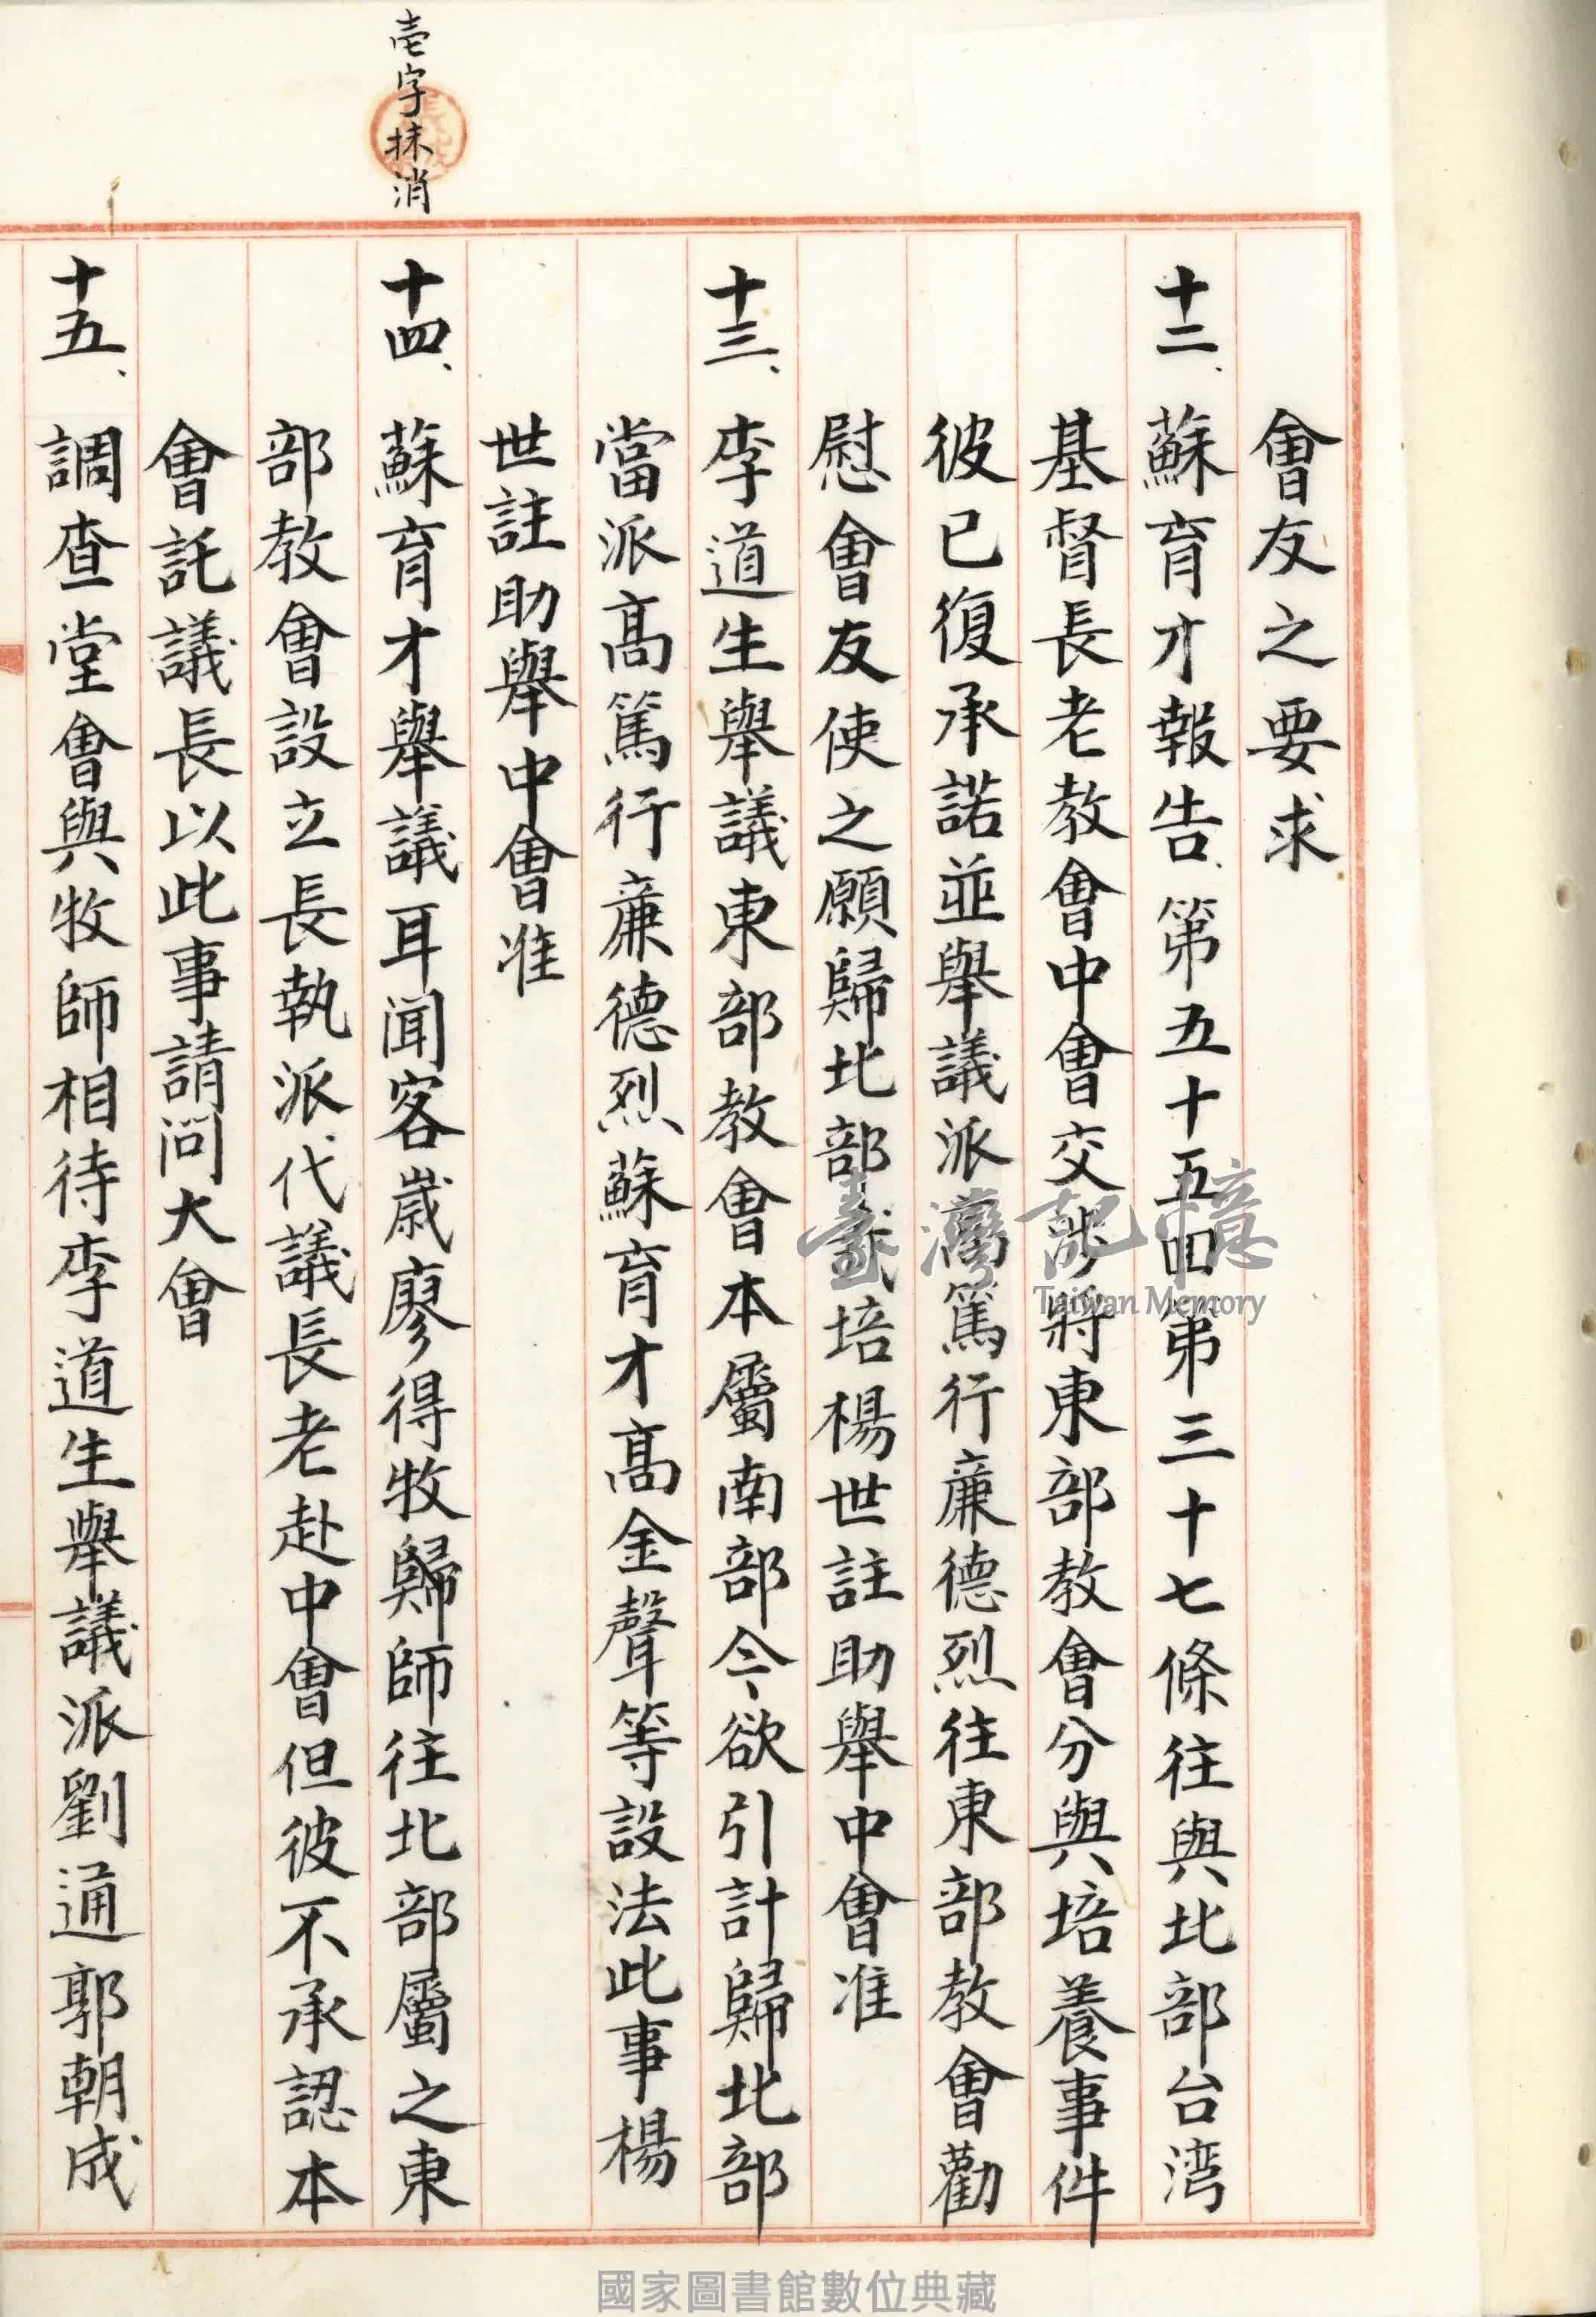 壱字抹消
會友之要求
十二、蘇育才報告、第五十五回第三十七條往與北部台湾
基督長老教會中會交涉將東部教會分與培養事件
彼已復承諾並舉議派高篤行廉德烈往東部教會勸
慰會友使之願歸北部栽培楊世註助舉中會准
十三、李道生舉議東部教會本屬南部今欲引計歸北部
當派高篤行廉德烈蘇育才高金聲等設法此事楊
世註助舉中會准
十四、蘇育才舉議耳聞客歲廖得牧歸師往北部屬之東
部教會設立長執派代議長老赴中會但彼不承認本
會託議長以此事請問大會
十五、調查堂會與牧師相待李道生舉議派劉通郭朝成
臺灣記憶
Taiwan Memory
國家圖書館數位典藏